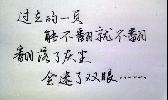 过去的一页
能不翻就不翻
翻落了灰尘
会迷了双眼……